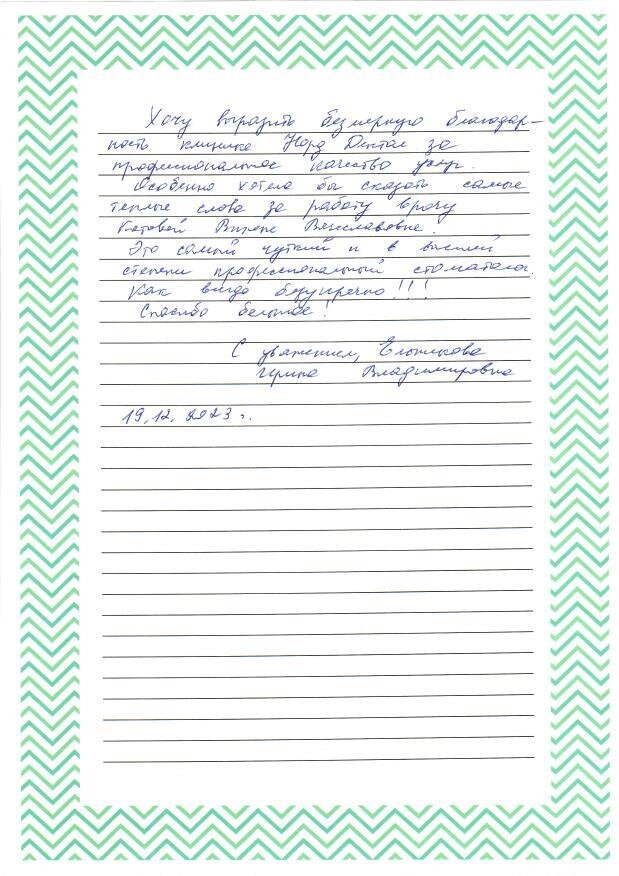 Хочу выразить безмерную благодар-
ность клинике Норд Дентал за
профессиональное качество услуг.
Особенно хотела бы сказать самые
теплые слова за работу врачу
Вячеславовне.
Это самый чуткий и в высшей
степени профессиональный стоматолог.
Как всегда безупречно!!!
Спасибо большое!
С уважением,
Ирина Владимировна
19.12.2023 г.